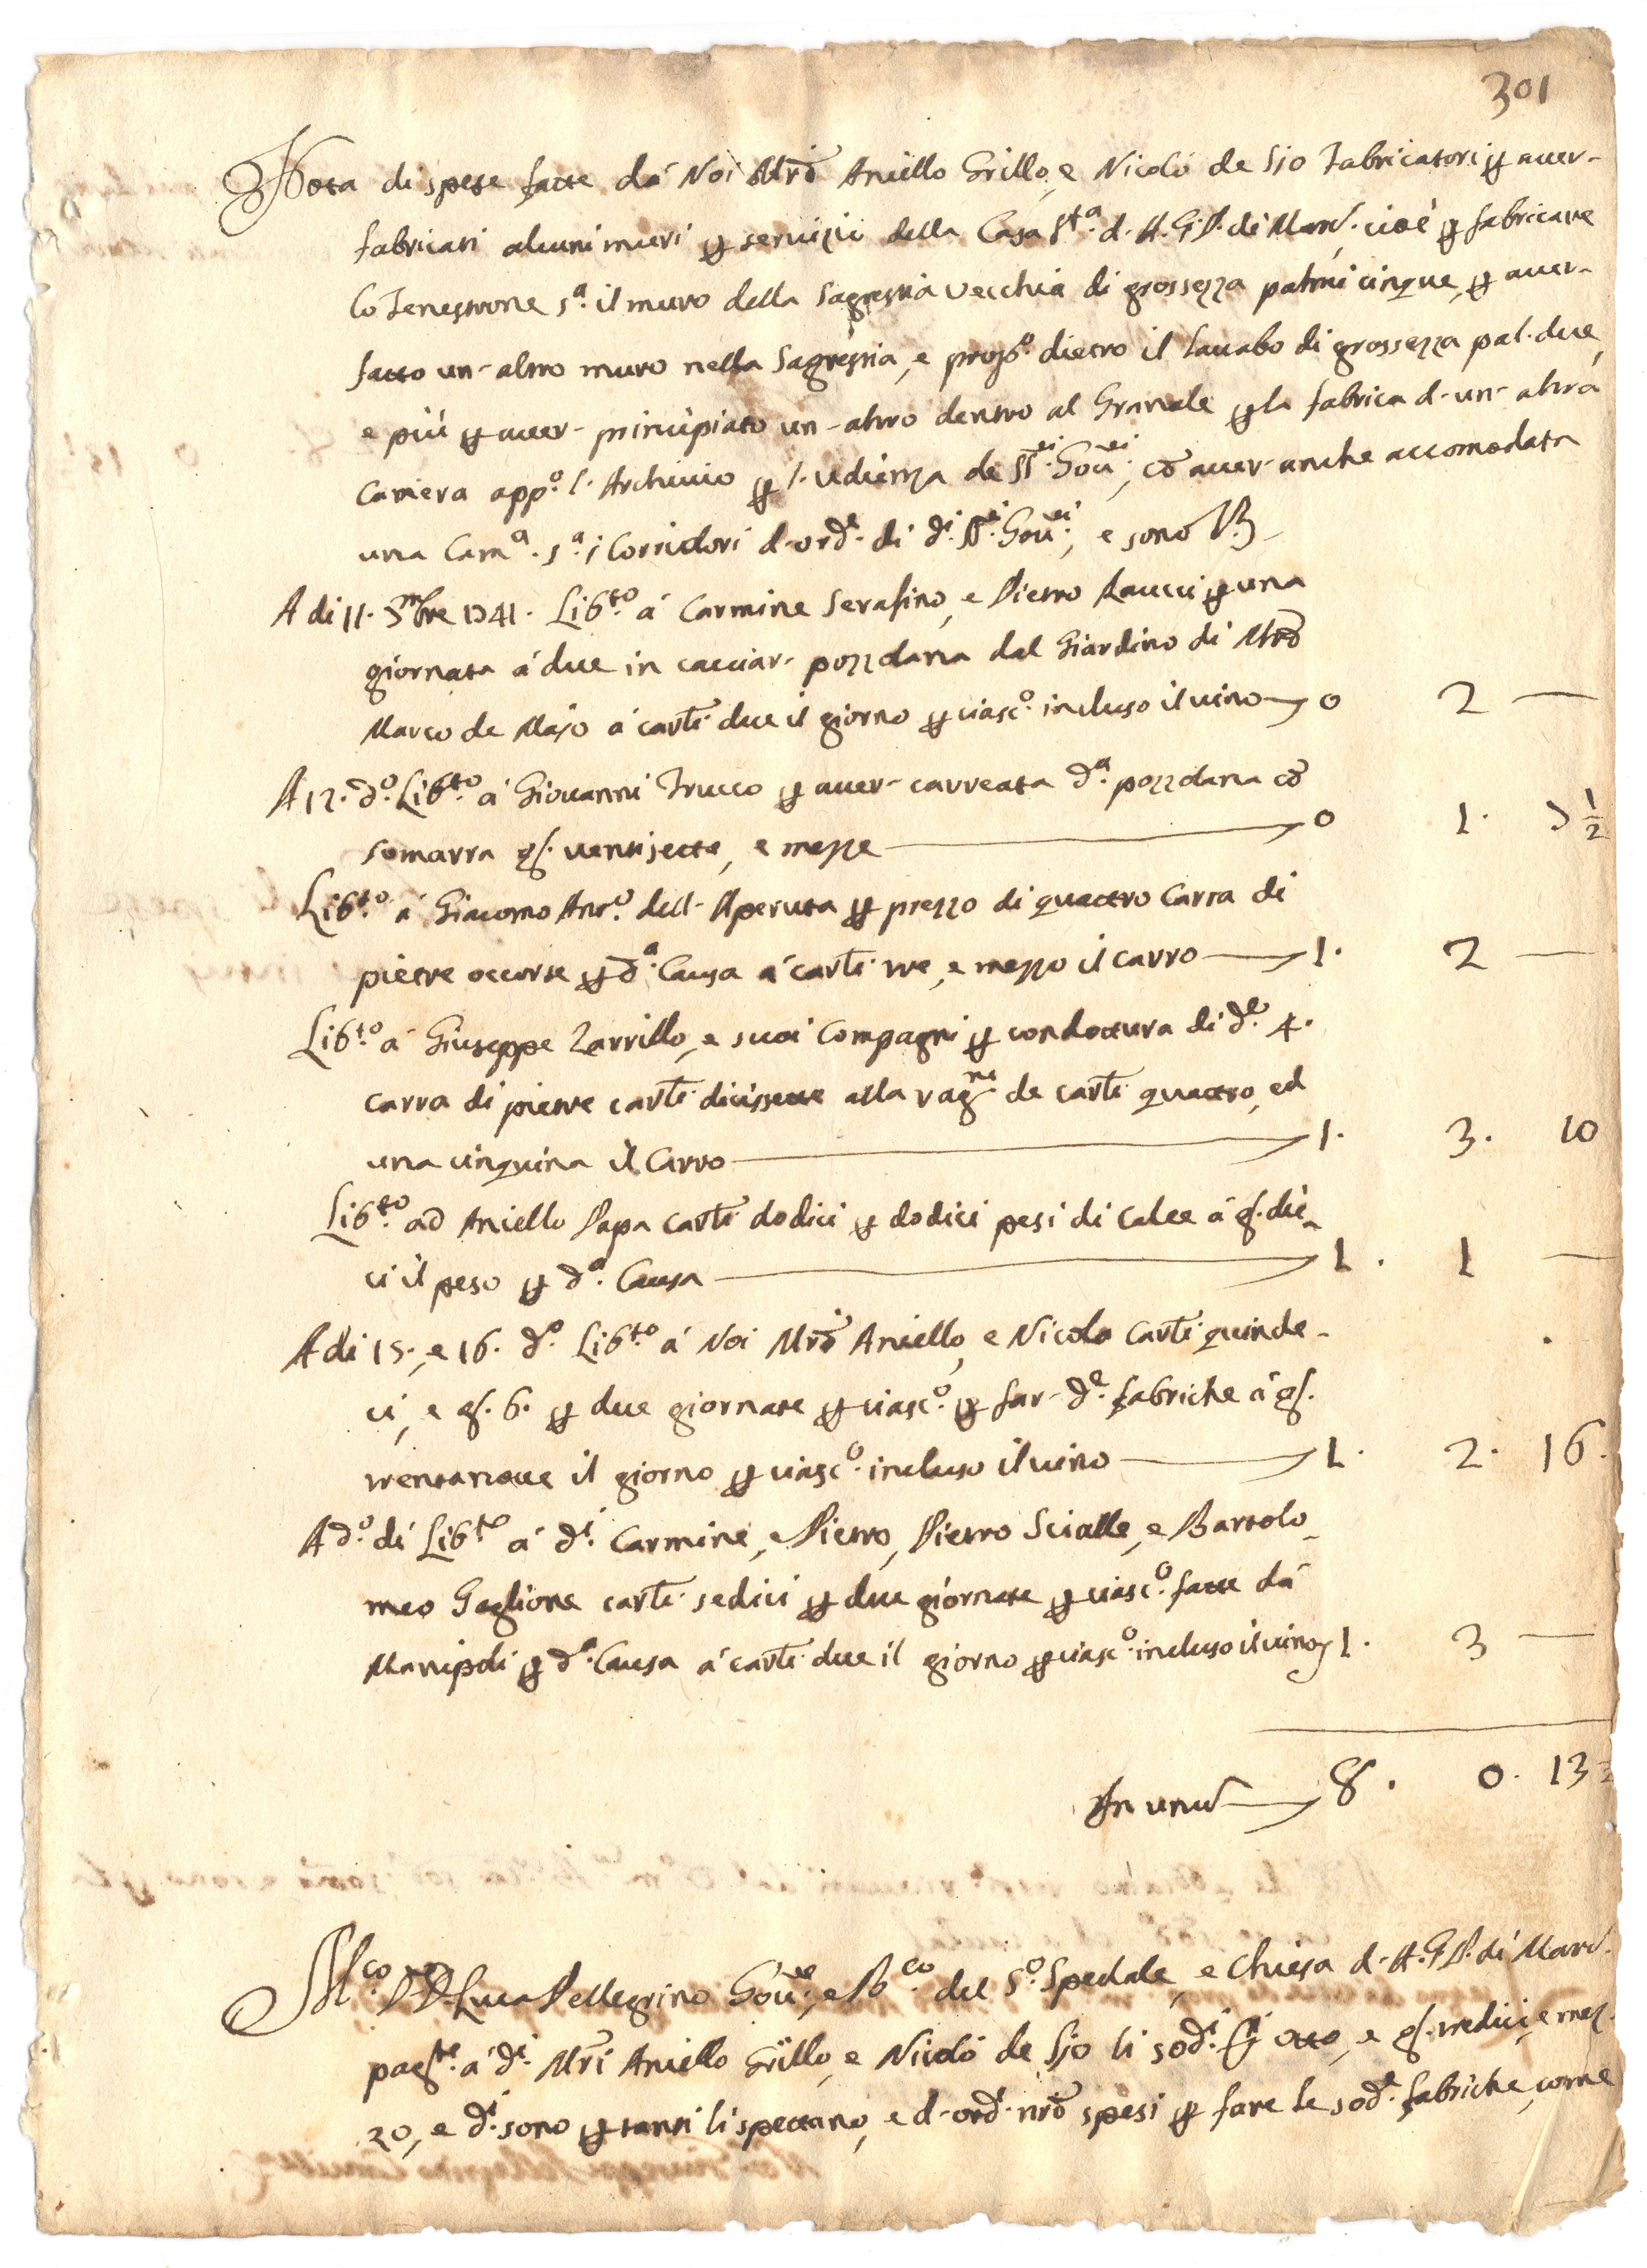 301
Nota di spese fatte dà Noi Mrõ Aniello Grillo, e Nicolò de Sio Fabricatori ꝑ auer-
fabricati alcuni muri ꝑ seruizii della Casa Stª. d. A. G. P. di Mard. cioè ꝑ fabricare
lo Fenestrone sª. il muro della Sagrestia vecchia di grossezza palmi cinque, ꝑ auer-
fatto un-altro muro nella Sagrestia, e prozº. dietro il lauabo di grossezza pal. due,
e più ꝑ auer- principiato un-altro dentro al Granale ꝑ la fabrica d-un-altra
Camera appº. l. Archiuio ꝑ l. udienza de SSei. Gouei., cõ auer-anche accomodata
una Camª. sª. i Corridori d-ordẽ. di di. SSei. Gouei., e sono
A di 11. 7mbre 1741. Libto. à Carmine Serafino, e Pietro Raucci ꝑ una
giornata à due in cacciar- pozzolana dal Giardino di Mrõ
Marco de Majo à carlĩ due il giorno ꝑ ciascº. incluso il uino 0 2 —
A 12. dº. Libto. à Giouanni Trucco ꝑ auer- carreata dª. pozzolana cõ
somarra gł. uentisette, e mezze 0 1. 7 1/2
Libto. à Giacomo Antº. dell- Aperuta ꝑ prezzo di quattro Carra di
pietre occorse ꝑ dª. Causa à carlĩ tre, e mezzo il carro 1. 2 —
Libto. à Giuseppe Zarrillo, e suoi Compagni ꝑ condottura di de. 4.
carra di pietre carlĩ dicissette alla ragne. de carlĩ quattro, ed
una cinquina il Carro 1. 3. 10
Libto. ad Aniello Papa carlĩ dodici ꝑ dodici pesi di Calce à g. die-
ci il peso ꝑ dª. Causa 1. 1 —
A di 15., e 16. dº. Libto. à Noi Mrĩ Aniello, e Nicolo carlĩ quinde-
ci, e gł. 6. ꝑ due giornate ꝑ ciascº. ꝑ far- de. fabriche à gł.
trentanoue il giorno ꝑ ciascº. incluso il uino 1. 2. 16.
A dº. dì Libto. à di. Carmine, e Pietro, Pietro Scialle, e Bartolo-
meo Gaglione carlĩ sedici ꝑ due giornate ꝑ ciascº. fatte dà
Manipoli ꝑ dª. Causa à carlĩ due il giorno ꝑ ciascº. incluso il uino 1. 3 —
An unũ 8. 0. 13 1/2
Mco. D. Luca Pellegrino Goue., e Bco. del Sº. Spedale, e Chiesa d. A. G. P. di Mard.
pagte. à di. Mrĩ Aniello Grillo, e Nicolò de Sio li sodi. otto, e gł. tredici, e mez-
zo, e di. sono ꝑ tanti li spettano, e d-ord. nrõ spesi ꝑ fare le sode. fabriche, come